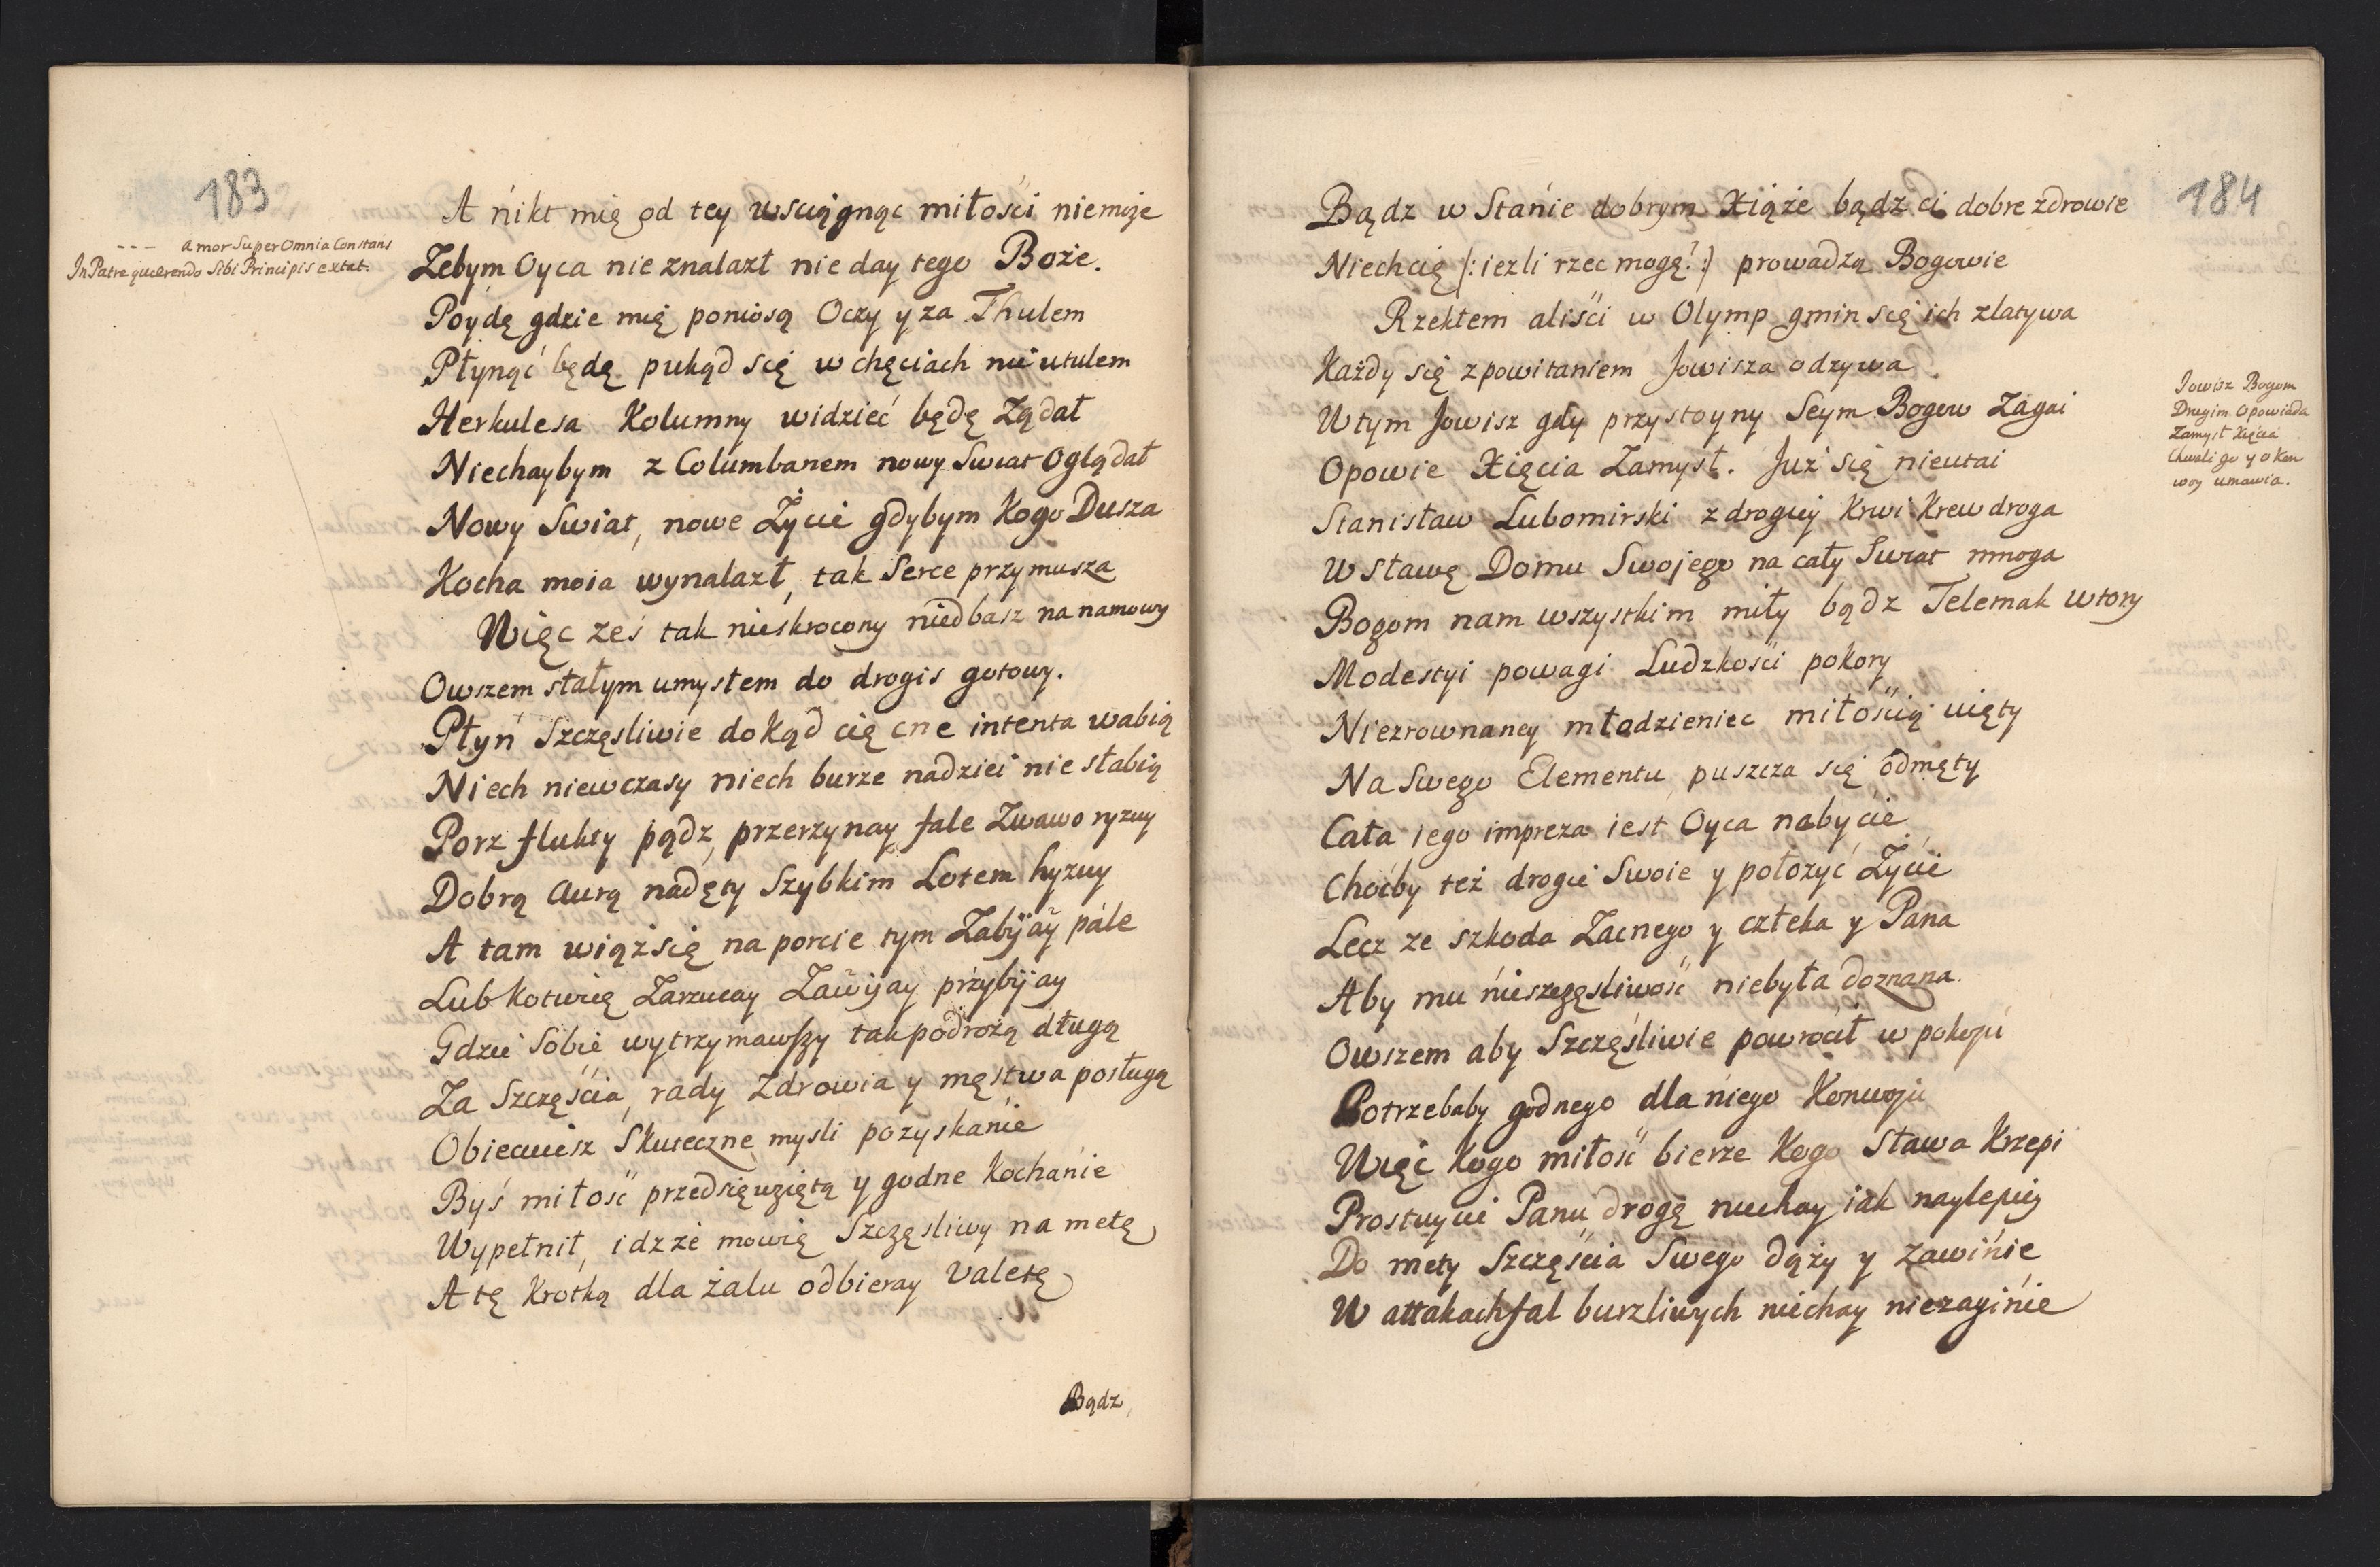 183
--- amor Super Omnia Constans
In Patre quaerendo Sibi Principis extat.
A nikt mię od tey wsciągnąc miłości niemoże
Zebym Oyca nie znalazł nie day tego Boże.
Poydę gdzie mię poniosą Oczy y za Thulem
Płynąć będę pukąd się w chęciach nie utulem
Herkulesa Kolumny widzieć będę Ządał
Niechaybym z Columbanem nowy Swiat Oglądał
Nowy Swiat, nowe Życie gdybym Kogo Dusza
Kocha moia wynalazł, tak Serce przymusza
Więc ześ tak nieskrocony niedbasz na namowy
Owszem stałym umysłem do drogis gotowy.
Płyń Szczęsliwie dokąd cię cne intenta wabią
Niech niewczasy niech burze nadziei nie słabią
Porz flukty pądz, przerzynay fale Zwawo ryzuy
Dobrą aurą nadęty Szybkim Lotem hyzuy
A tam wiąż się na porcie tym Zabijay pale
Lub Kotwię Zarzucay Zawijay przybijay
Gdzie Sobie wytrzymawszy tak podrożą długą
Za Szczęścia, rady Zdrowia y męstwa posługą
Obiecuiesz Skuteczne mysli pozyskanie
Byś miłość przedsięwziętą y godne Kochanie
Wypełnił, idzże mowię Szczęsliwy na metę
A tę Krotką dla żalu odbieray Valetę
Bądz,
184
Bądz w Stanie dobrym Xiąże bądz ci dobre zdrowie
Niech cię (: iezli rzec mogę? :) prowadzą Bogowie
Rzekłem aliści w Olymp gmin się ich zlatywa
Każdy się z powitaniem Jowisza odzywa
W tym Jowisz gdy przystoyny Seym Bogow Zagai
Opowie Xięcia Zamysł. Już się nieutai
Stanisław Lubomirski z drogiej Krwi Krew droga
W sławę Domu Swojego na cały Swiat mnoga
Bogom nam wszystkim miły bądz Telemak wtory
Modestyi powagi Ludzkości pokory
Niezrownaney młodzieniec miłością uięty
Na Swego Elementu puszcza się odmęty
Cała iego impreza iest Oyca nabycie
Choćby też drogie Swoie y położyć Życie
Lecz ze szkoda Zacnego y człeka y Pana
Aby mu nieszczęsliwość niebyła doznana.
Owszem aby Szczęśliwie powrocił w pokoju
Potrzebaby godnego dla niego Konwoju
Więc Kogo miłość bierze Kogo Sława Krzepi
Prostuycie Panu drogę niechay iak naylepiey
Do mety Szczęścia Swego dąży y zawinie
W attakach fal burzliwych niechay niezaginie
Jowisz Bogom
Drugim Opowiada
Zamysł Xięcia
Chwali go y o Kon
woy umawia.